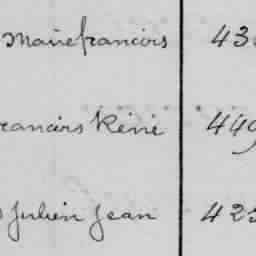 Marie françois 43
rancois Réné 449
Julien Jean 423